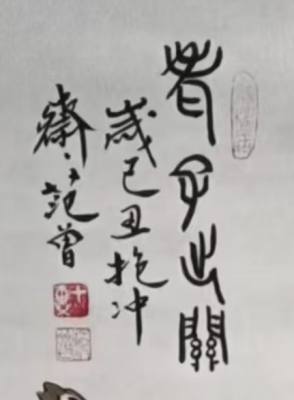 老子出關
歲己丑抱冲
齋主范曾